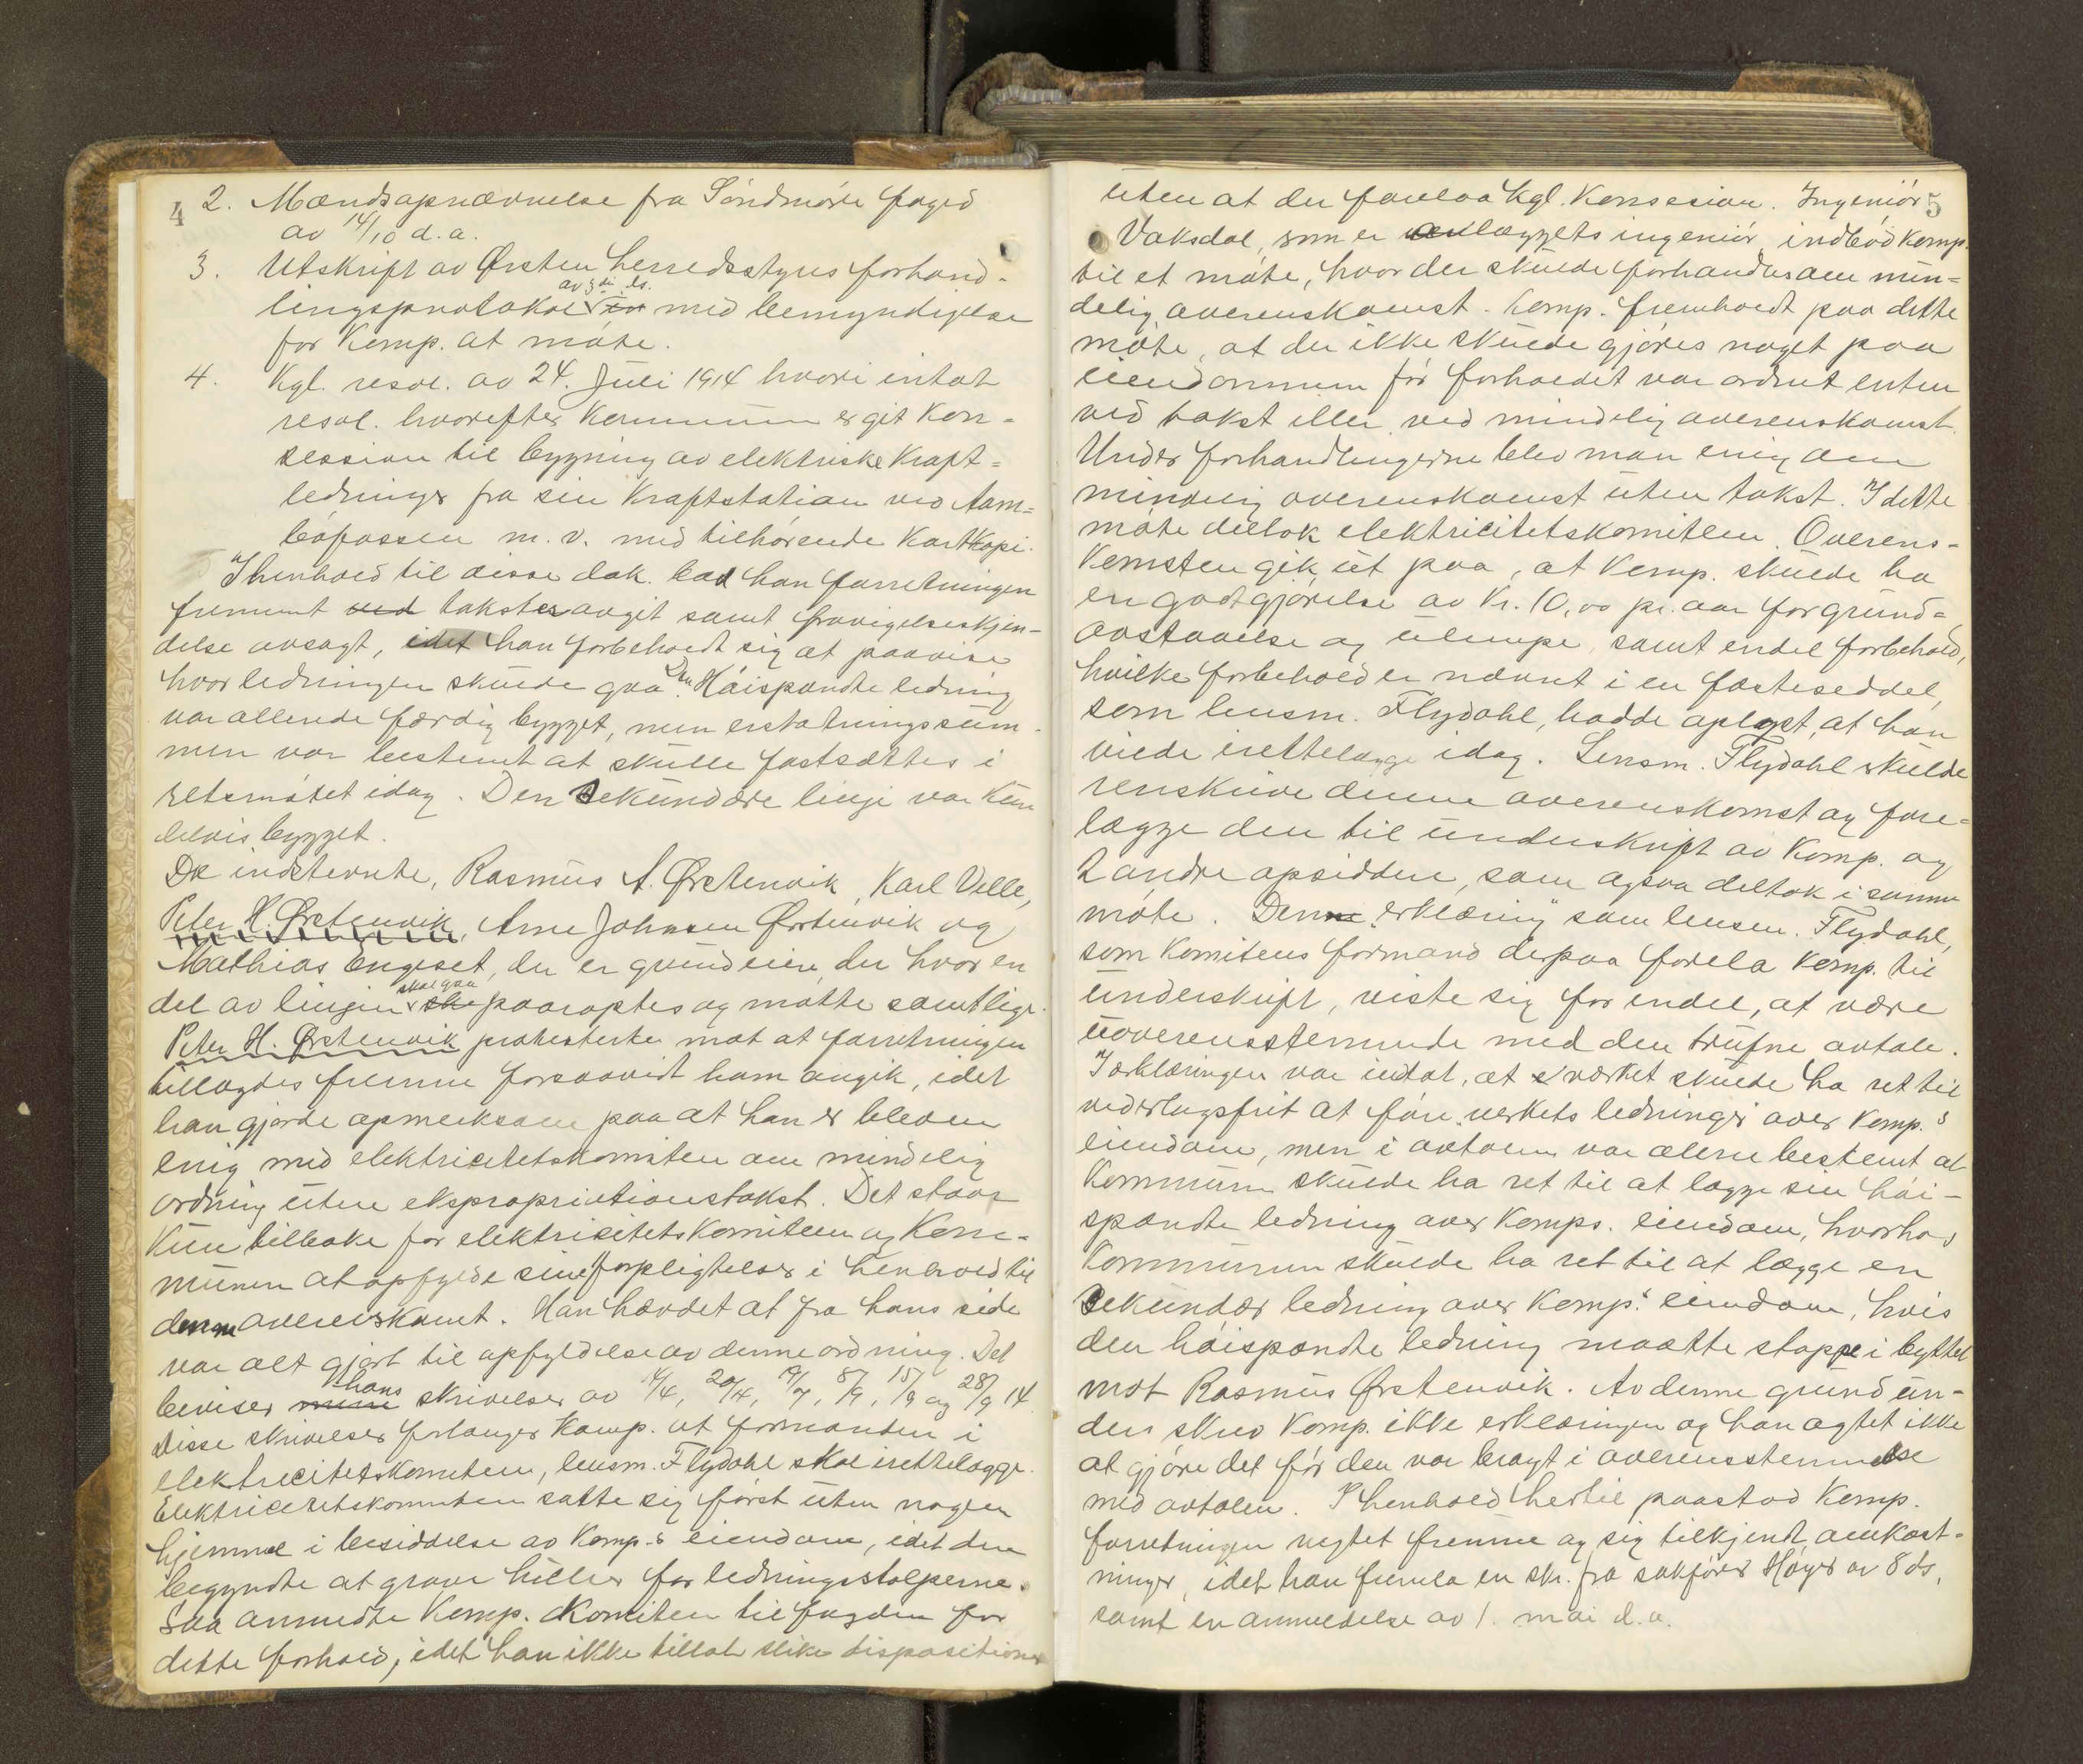 4
2. Mændsopnævnelse fra Söndmöre foged
av 14/10 d.a.
3. Utskrift av Ørsten herredsstyres forhand-
lingsprotokol av 3die ds. med bemyndigelse
for Komp. at møte.
4. Kgl. resol. av 24. Juli 1914 hvori intat
resol. hvorefter Kommunen er git Kon-
session til bygning av elektriske Kraft-
ledninger fra sin Kraftstation ved Aam-
böfossen m.v. med tilhörende Kartkopi.
I henhold til disse dok. bad han forretningen
fremmet takster avgit samt fravigelseskjen-
delse avsagt, idet han forbeholdt sig at paavise
hvor ledningen skulde gaa. Den Höispændte ledning
var allerede færdig bygget, men erstatningssum-
men var bestemt at skulle fastsættes i
retsmötet idag. Den Sekundære linje var kun
delvis bygget.
De indstevnte, Rasmus A. Ørstenvik, Karl Velle,
Peter H. Ørstenvik, Arne Johnsen Ørstenvik og
Mathias Engeset, der er grundeiere der hvor en
del av linjen skal gaa paaroptes og mötte samtlige.
Peter H. Ørstenvik protesterte mot at forretningen
tillagdes fremme forsaavidt ham angik, idet
han gjorde opmerksom paa at han er bleven
enig med elektricitetskomiteen om mindelig
ordning uten ekspropriationstakst. Det staar
Kun tilbake for elektricitetskomiteen og Kom-
munen at opfylde sine forpligtelser i henhold til
denne overenskomst. Han hævdet at fra hans side
var alt gjort til opfyldelse av denne ordning. Det
beviser hans skrivelser av 14/4, 20/4, 19/7, 8/9, 15/9 og 28/9 14.
Disse skrivelser forlanger Komp. at formanden i
elektricitetskomiteen, lensm. Flydahl skal irettelægge.
Elektricitetskomiteen satte sig först uten nogen
hjemmel i besiddelse av Komp.s eiendom, idet den
begyndte at grave huller for ledningsstolperne.
Saa anmeldte Komp. Komiteen til fogden for
dette forhold, idet han ikke tillot slike dispositioner
5
uten at der forelaa Kgl. Konsession. Ingeniör
Vaksdal, som er anlæggets ingeniör, indböd Komp.
til et möte, hvor der skulde forhandles om min-
delig overenskomst. Komp. fremholdt paa dette
möte, at der ikke skulde gjöres noget paa
eiendommen för forholdet var ordnet enten
ved takst eller ved mindelig overenskomst.
Under forhandlingerne blev man enig om
mindelig overenskomst uten takst. I dette
möte deltok elektricitetskomiteen. Overens-
Komsten gik ut paa, at Komp. skulde ha
en godtgjörelse av Kr. 10,00 pr. aar for grund-
avstaaelse og ulempe, samt endel forbehold,
hvilke forbehold er nævnt i en fæsteseddel,
som lensm. Flydahl, hadde oplyst, at han
vilde irettelægge idag. Lensm. Flydahl skulde
renskrive denne overenskomst og fore-
lægge den til underskrift av Komp. og
2 andre opsiddere, som ogsaa deltok i samme
möte. Denne "erklæring" som lensm. Flydahl,
som Komiteens formand derpaa forela Komp. til
underskrift, viste sig for endel, at være
uoverensstemmende med den trufne avtale.
I erklæringen var indtat, at værket skulde ha ret til
vederlagsfrit at före "verkets ledninger over Komp.'s
eiendom, men i avtalen var alene bestemt at
Kommunen skulde ha ret til at lægge sin höi-
spændte ledning over Komps. eiendom, hvorhos
Kommunen skulde ha ret til at lægge en
Sekundær ledning over Komp.s eiendom, hvis
den höispændte ledning maatte stoppe i byttet
mot Rasmus Ørstenvik. Av denne grund un-
derskrev Komp. ikke erklæringen og han agtet ikke
at gjöre det för den var bragt i overensstemmelse
med avtalen. I henhold hertil paastod Komp.
forretningen negtet fremme og sig tilkjendt omkost-
ninger, idet han fremla en skr. fra sakförer Höyer av 8 ds,
samt en anmeldelse av 1. mai d.a.